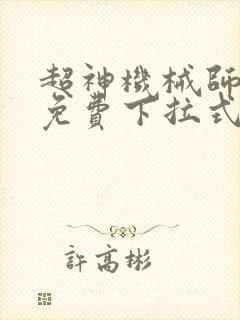 超神機械師
免費下拉式
許高彬